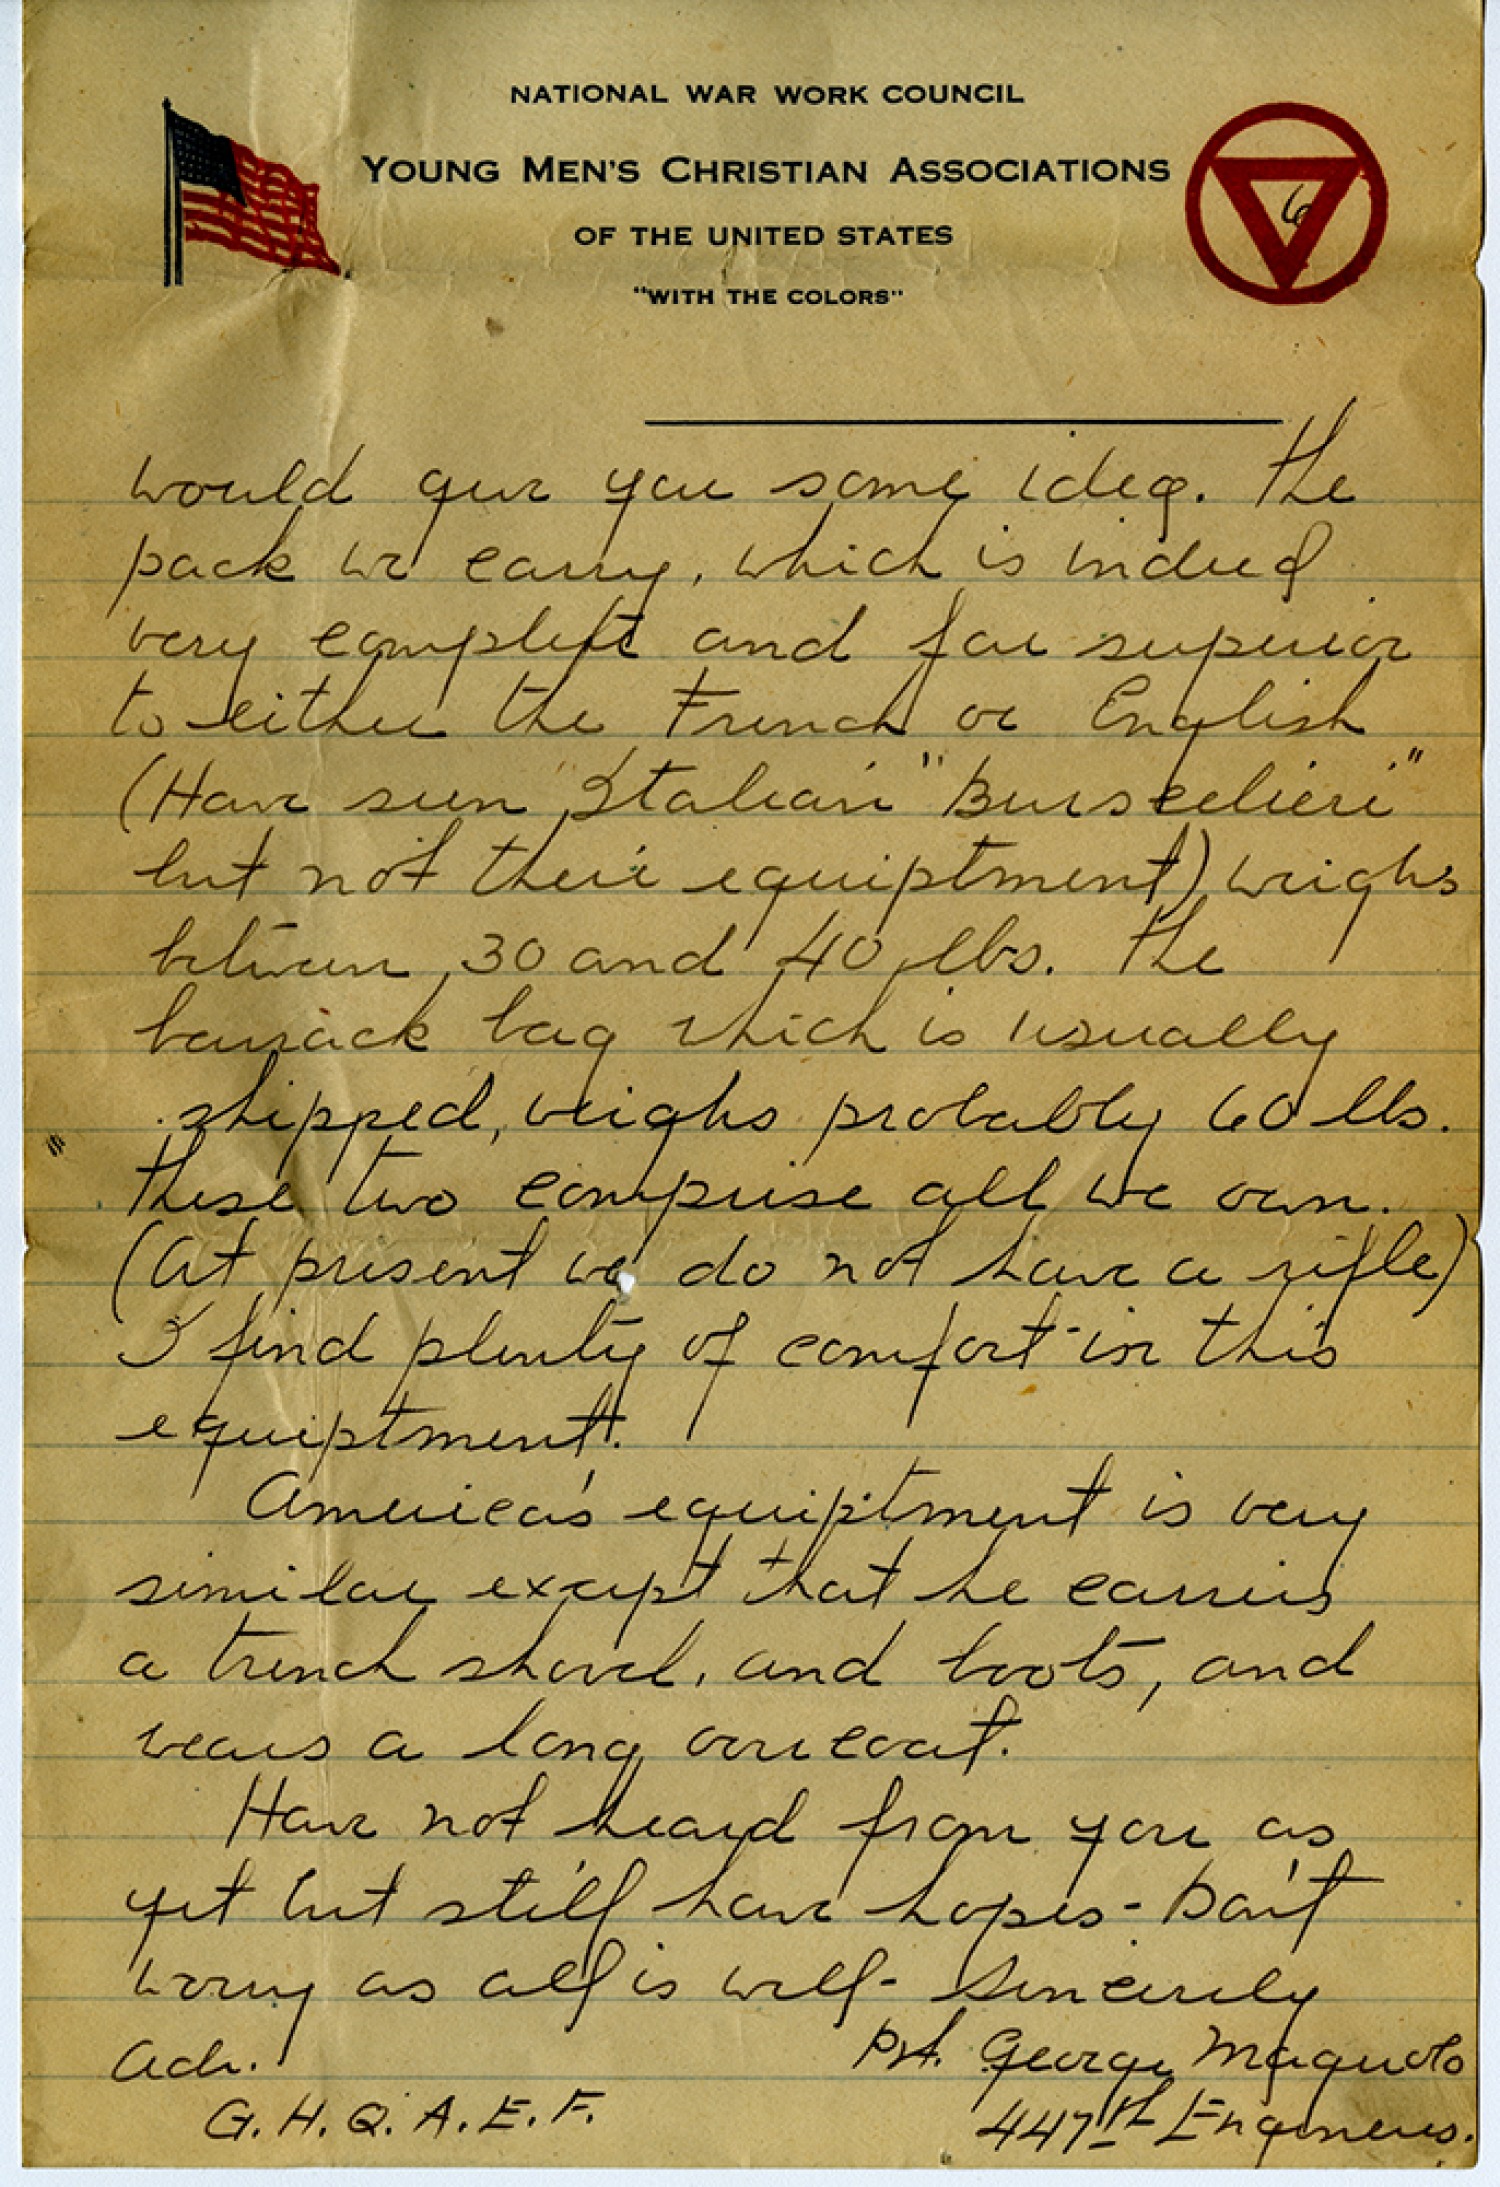 NATIONAL WAR WORK COUNCIL
YOUNG MEN'S CHRISTIAN ASSOCIATIONS
OF THE UNITED STATES
"WITH THE COLORS"
6
would give you some idea. The
pack we carry, which is indeed
very complete and far superior
to either the French or English
(Have seen Italian "Burseelieri"
but not their equiptment) weighs
between 30 and 40 lbs. The
barrack bag which is usually
shipped, weighs probably 60 lbs.
These two comprise all we own.
(At present we do not have a rifle)
I find plenty of comfort in this
equiptment.
America's equiptment is very
similar except that he carries
a trench shovel, and boots, and
wears a long overcoat.
Have not heard from you as
yet but still have hopes - Don't
worry as all is well - Sincerely
Adr. Pvt. George Magnolo
G.H.Q. A.E.F. 447th Engineers.